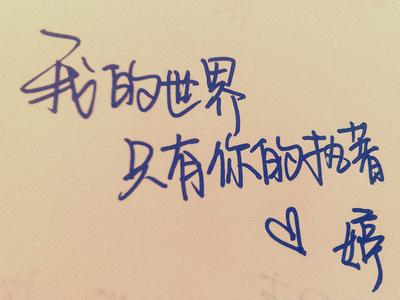 我的世界
只有你的执着
♡ 婷